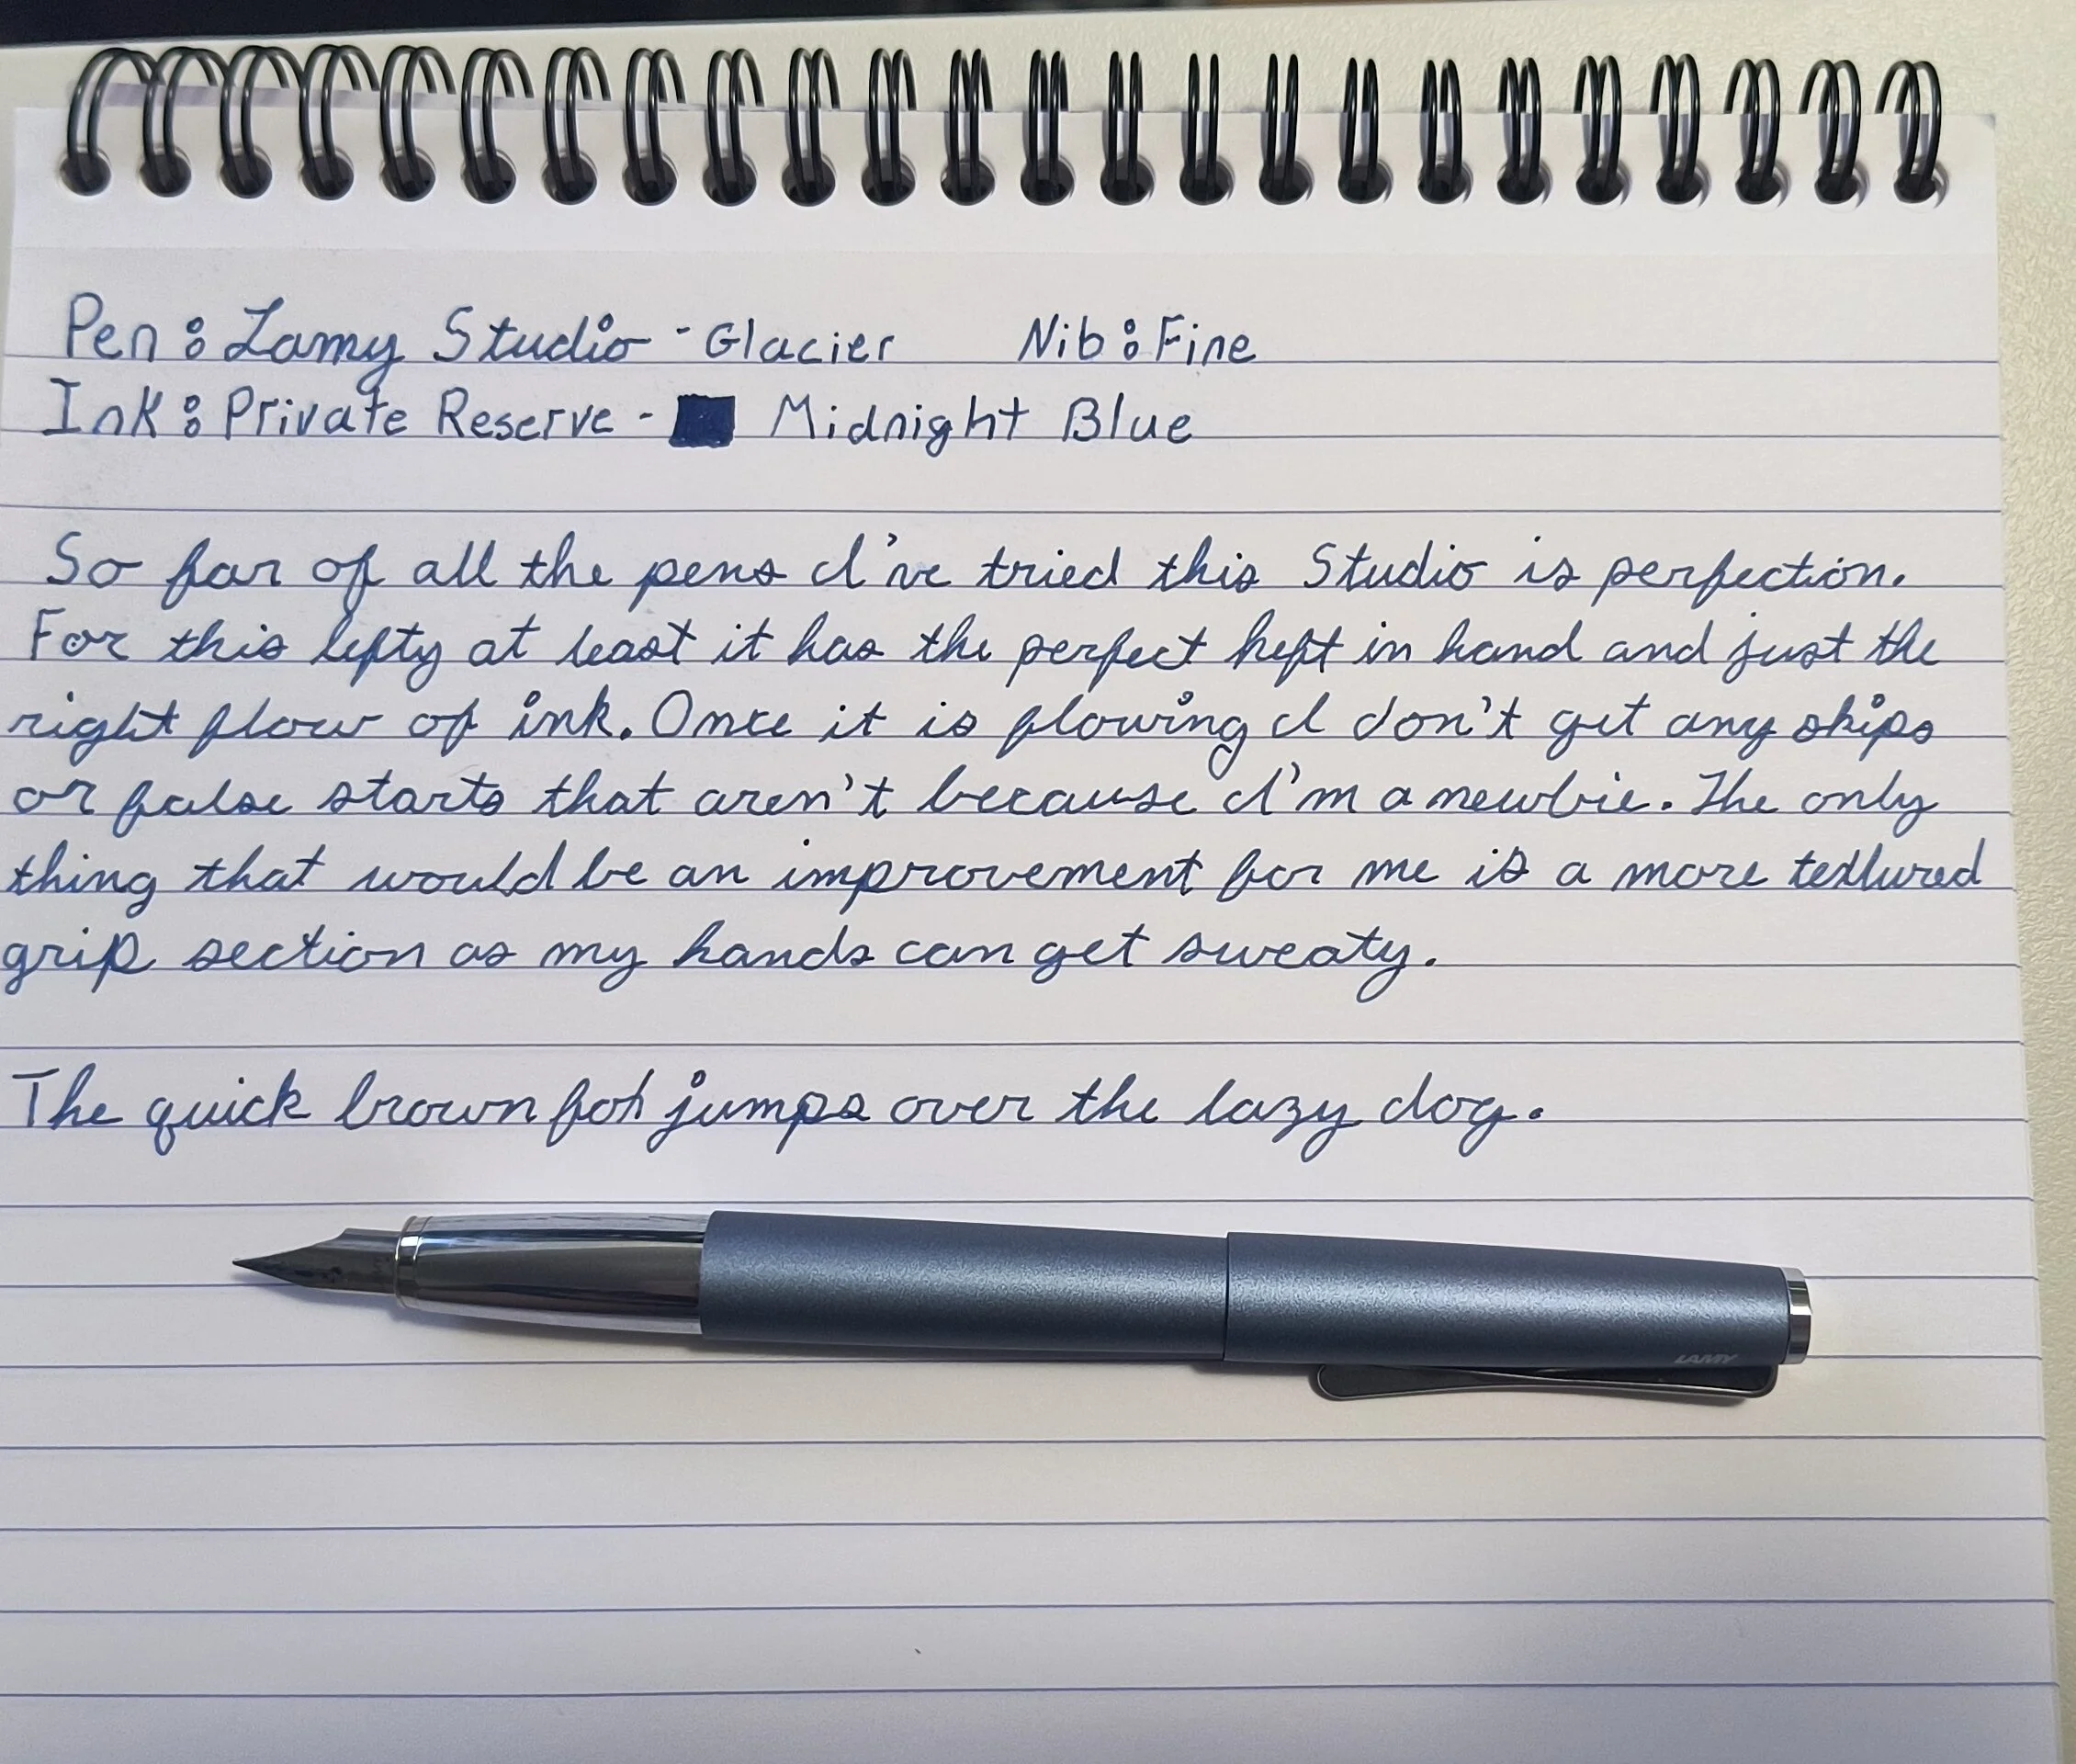 Pen: Lamy Studio - Glacier Nib: Fine
Ink: Private Reserve - Midnight Blue
So far of all the pens I've tried this Studio is perfection.
For this lefty at least it has the perfect heft in hand and just the
right flow of ink. Once it is flowing I don't get any skips
or false starts that aren't because I'm a newbie. The only
thing that would be an improvement for me is a more textured
grip section as my hands can get sweaty.
The quick brown fox jumps over the lazy dog.
LAMY